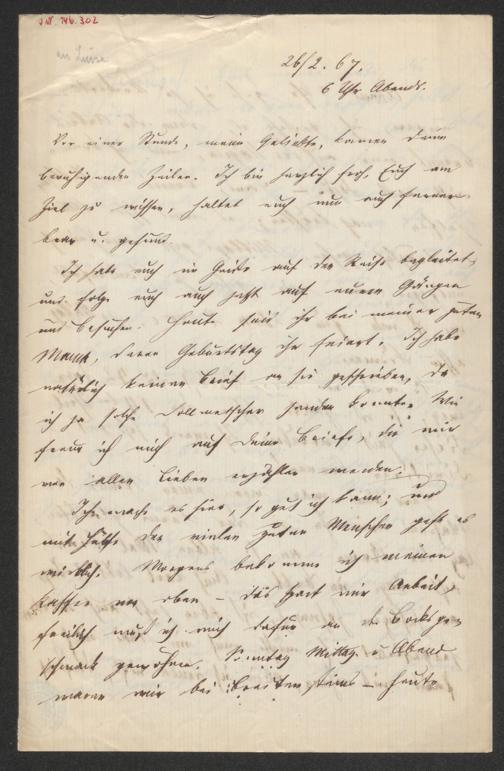 J.N. 146.302
an Luise
26/2. 67.
6 Uhr Abends.
Vor einer Stunde, meine Geliebte, kamen Deine
beruhigenden Zeilen. Ich bin herzlich froh, Euch am
Ziel zu wissen, haltet euch nun auch ferner
brav u. gesund.
Ich habe euch im Geiste auf der Reise begleitet,
und folge euch auch jetzt auf euren Gängen
und Besuchen. Heute seid ihr bei meiner guten
Mama, deren Geburtstag ihr feiert. Ich habe
natürlich keinen Brief an sie geschrieben, da
ich ja solche Dollmetscher senden konnte. Wie
freue ich mich auf Deine Briefe, die mir
von allen Lieben erzählen werden.
Ich mache es hier, so gut ich kann; und
mit Hülfe der vielen guten Menschen geht es
wirklich. Morgens bekomme ich meinen
Kaffee von oben – das spart mir Arbeit,
freilich muß ich mich dafür an de
schmack gewöhnen. Sonntag Mittag u Abend
waren wir bei – heute